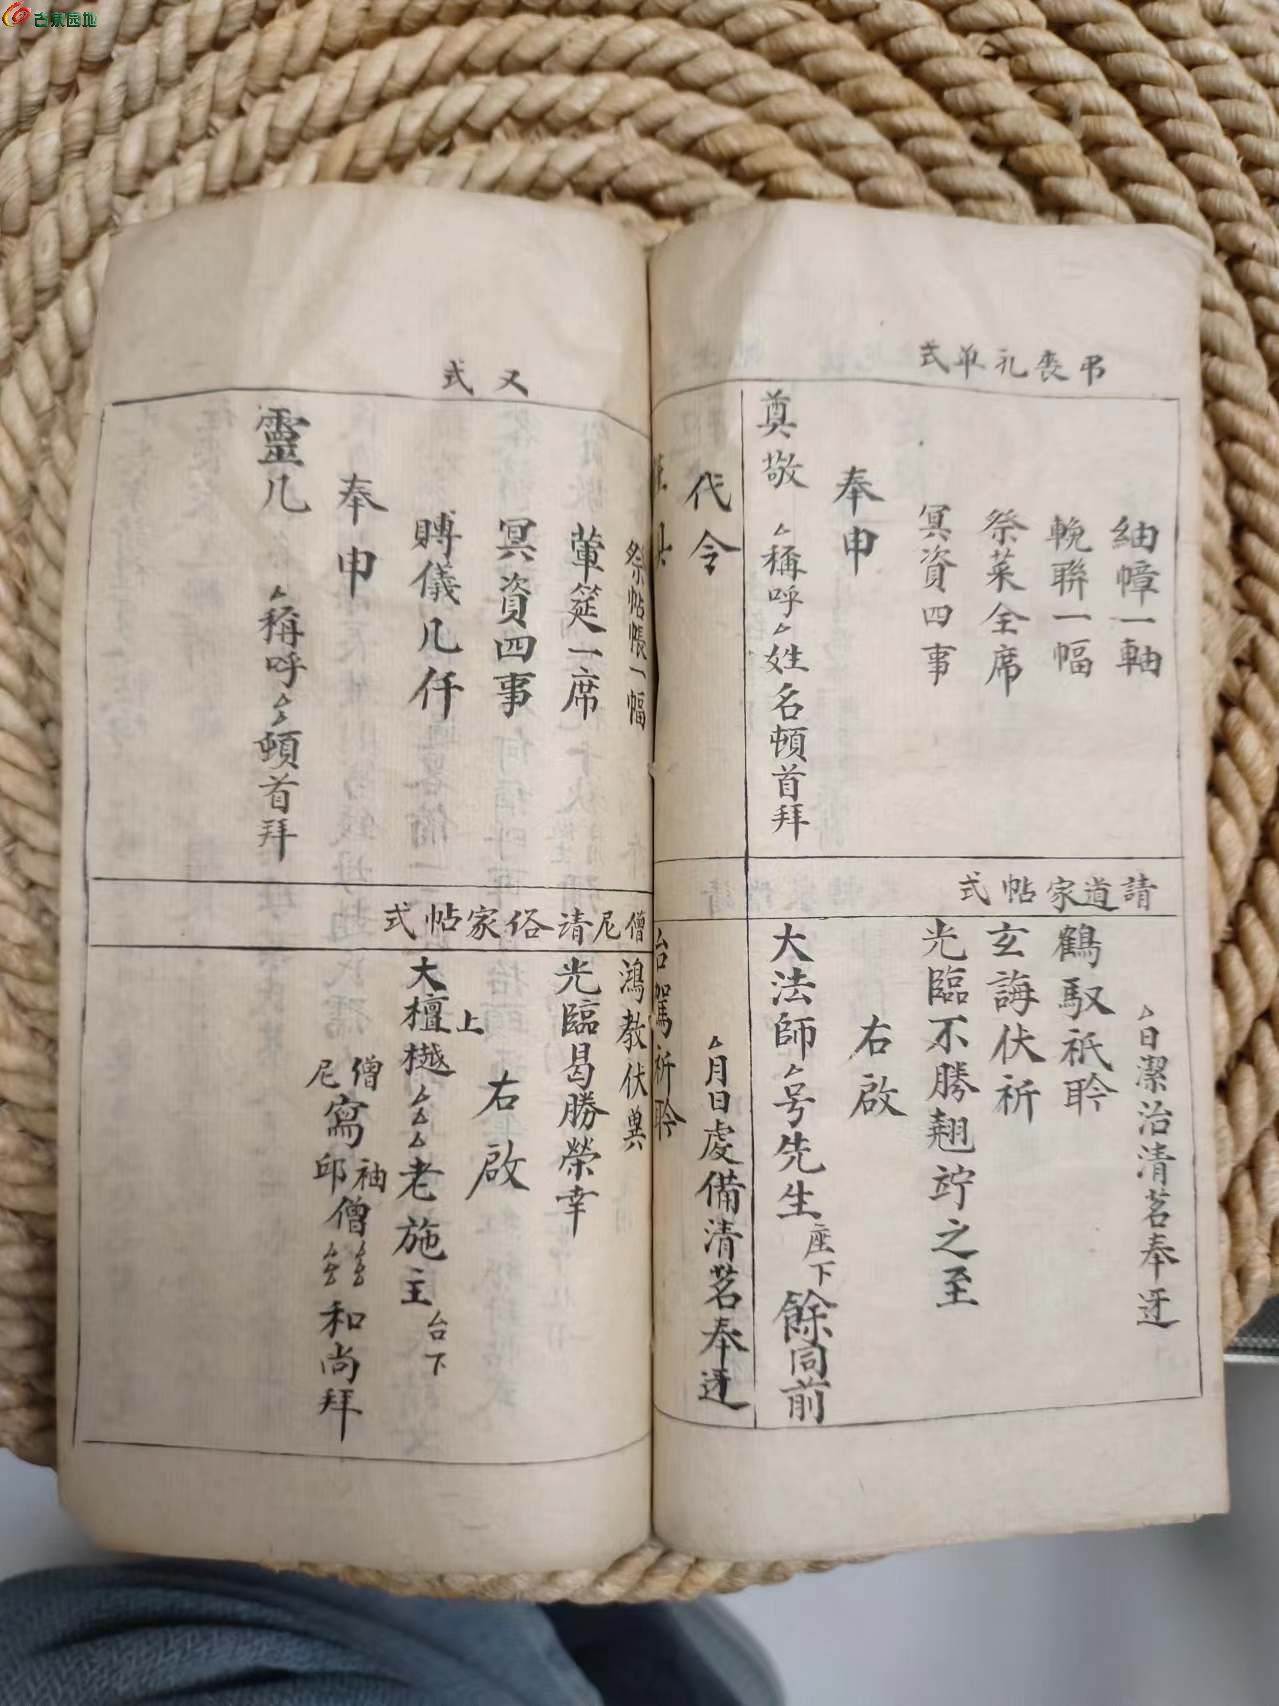 古泉园地
吊喪礼单式
紬幛一軸
輓聯一幅
祭菜全席
冥資四事
奉申
奠敬 厶稱呼厶姓名頓首拜
代令
請道家帖式
厶日潔治清茗奉迓
鶴馭祇聆
玄誨伏祈
光臨不勝翹竚之至
右啟
大法師厶号先生座下餘同前
厶月日處備清茗奉迓
台駕祈聆
又式
祭帖帳一幅
葷筵一席
冥資四事
賻儀几仟
奉申
靈几 厶稱呼厶厶頓首拜
僧尼请俗家帖式
鴻教伏兾
光臨曷勝榮幸
右啟
上
大檀樾厶厶厶老施主台下
僧尼寫袖邱僧厶厶厶厶和尚拜